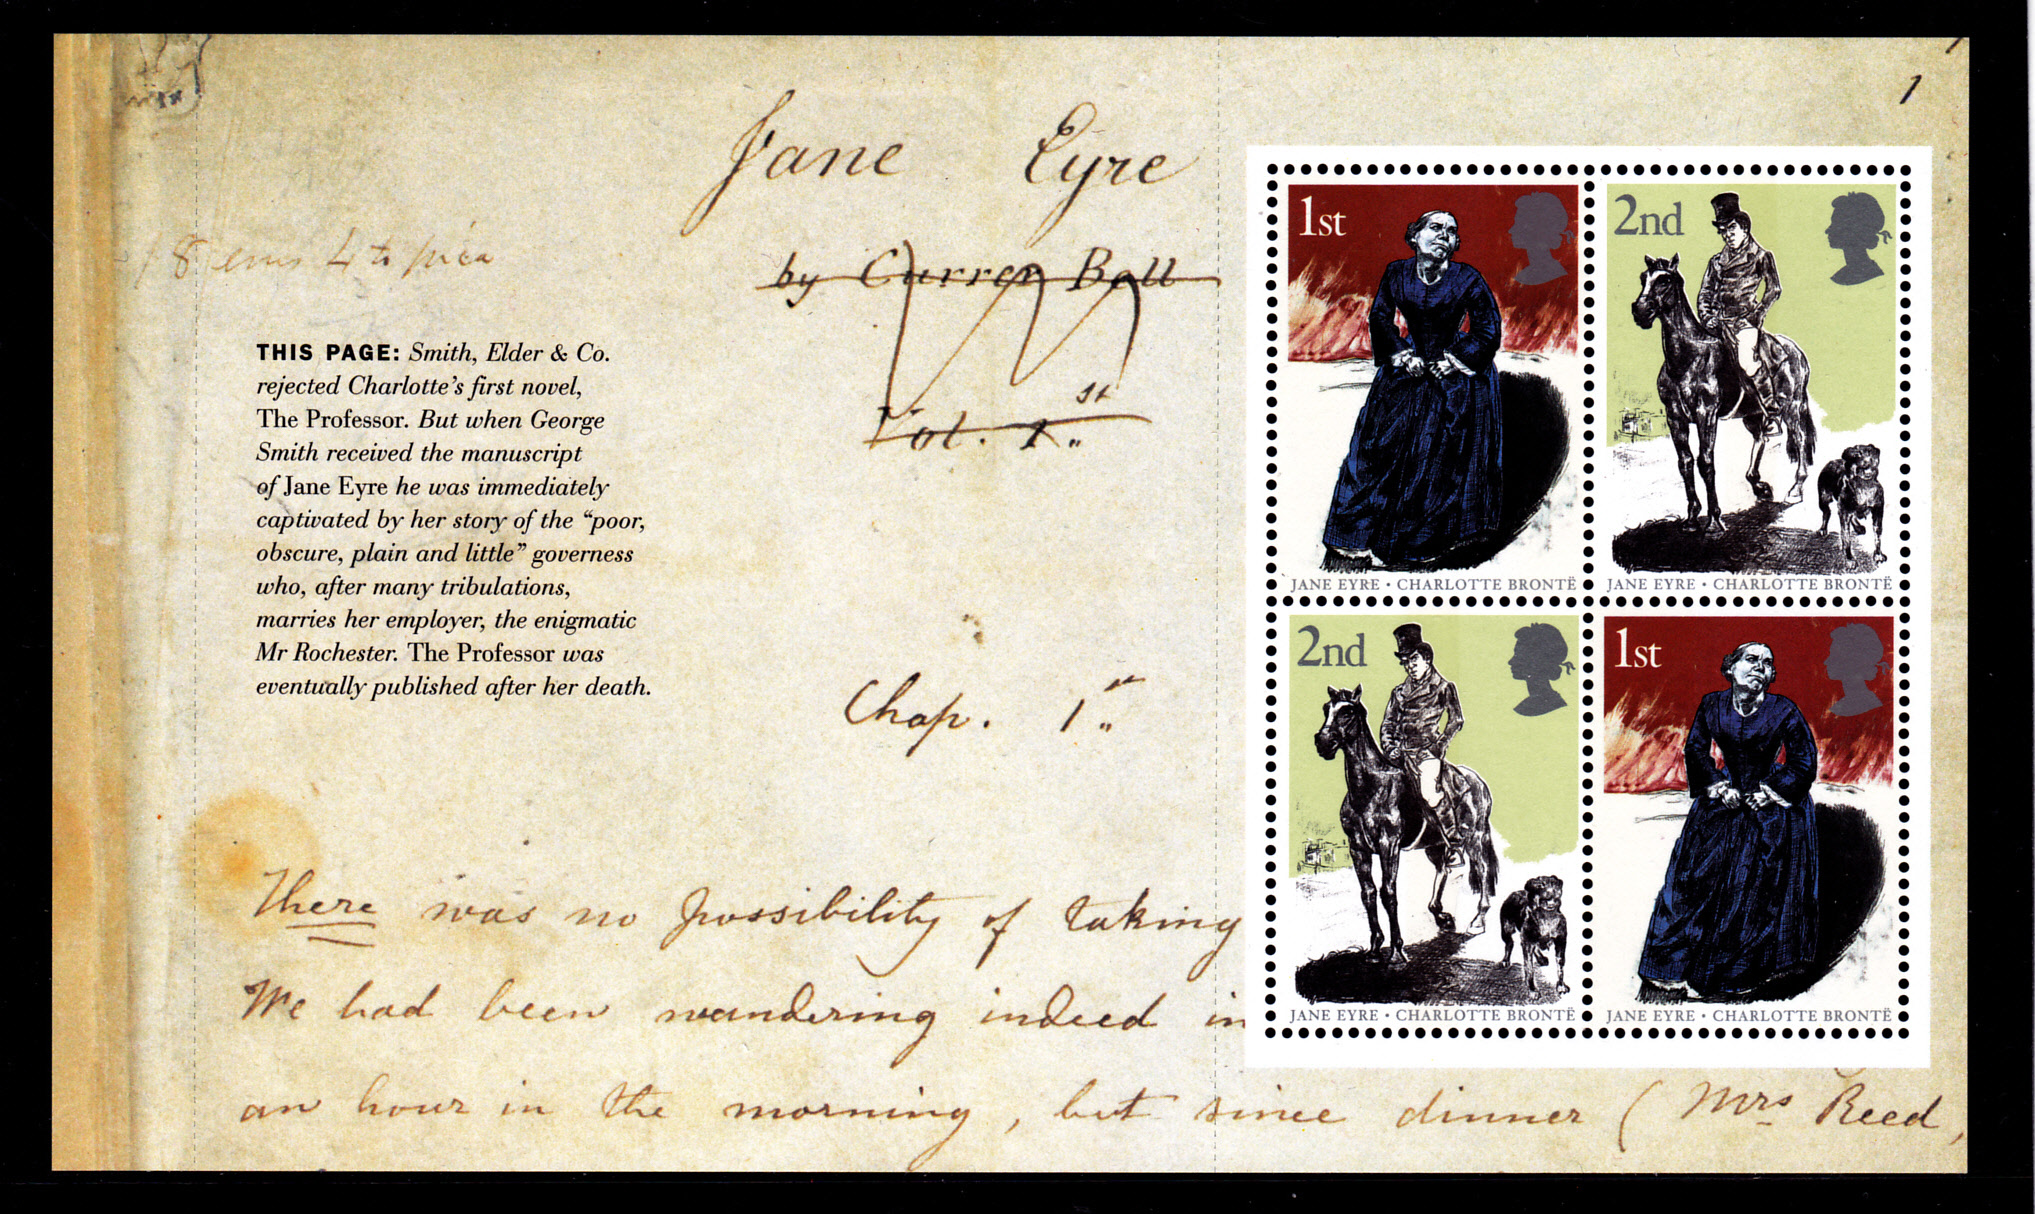 1
Jane Eyre
by Currer Bell
8 ems 4 to pica
Vol. 1st
THIS PAGE: Smith, Elder & Co.
rejected Charlotte's first novel,
The Professor. But when George
Smith received the manuscript
of Jane Eyre he was immediately
captivated by her story of the “poor,
obscure, plain and little” governess
who, after many tribulations,
marries her employer, the enigmatic
Mr Rochester. The Professor was
eventually published after her death.
Chap. 1st
There was no possibility of taking
We had been wandering indeed in
an hour in the morning, but since dinner (Mrs Reed,
1st
JANE EYRE • CHARLOTTE BRONTË
2nd
JANE EYRE • CHARLOTTE BRONTË
2nd
JANE EYRE • CHARLOTTE BRONTË
1st
JANE EYRE • CHARLOTTE BRONTË